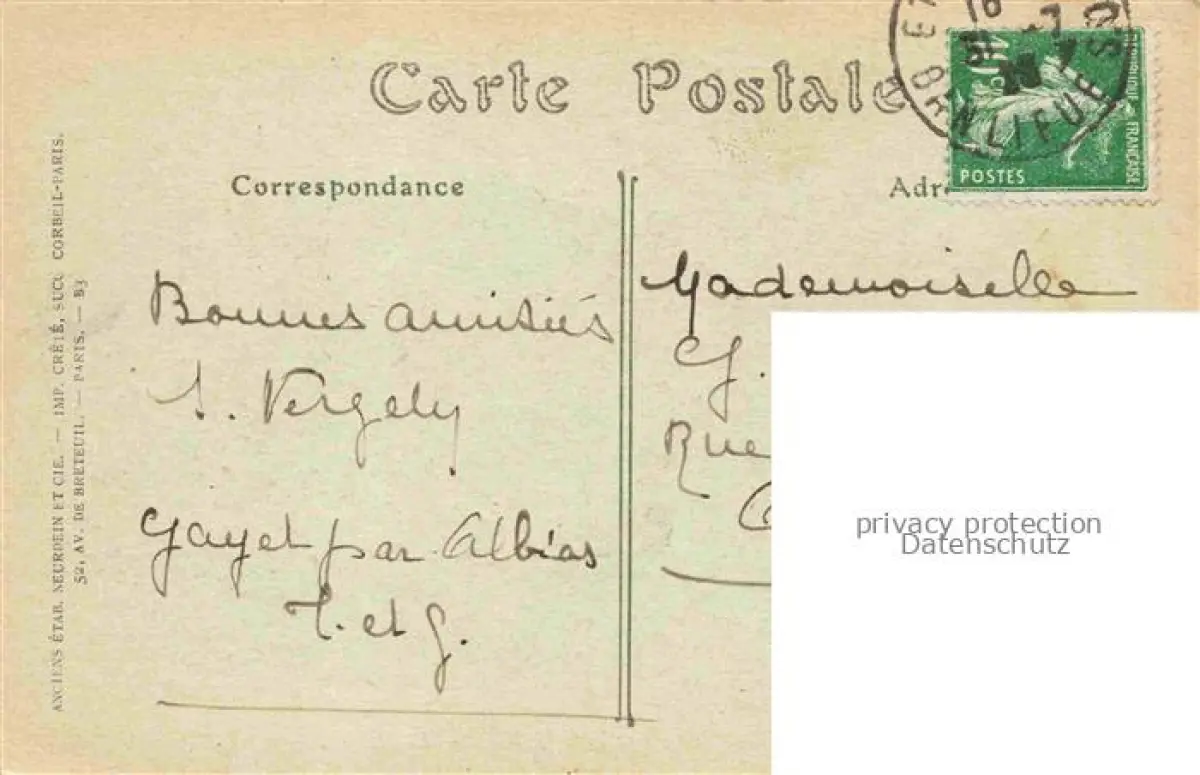 Carte Postale
Correspondance
Bonnes amitiés
S. Vergely
Gayet par Albias
T. et G.
Adr
Mademoiselle
G.
Rue
10 c
POSTES
FRANÇAISE
privacy protection
Datenschutz
ANCIENS ÉTAB. NEURDEIN ET CIE. — IMP. CRÉTÉ, SUCC CORBEIL-PARIS.
52, AV. DE BRETEUIL. — PARIS. — B3